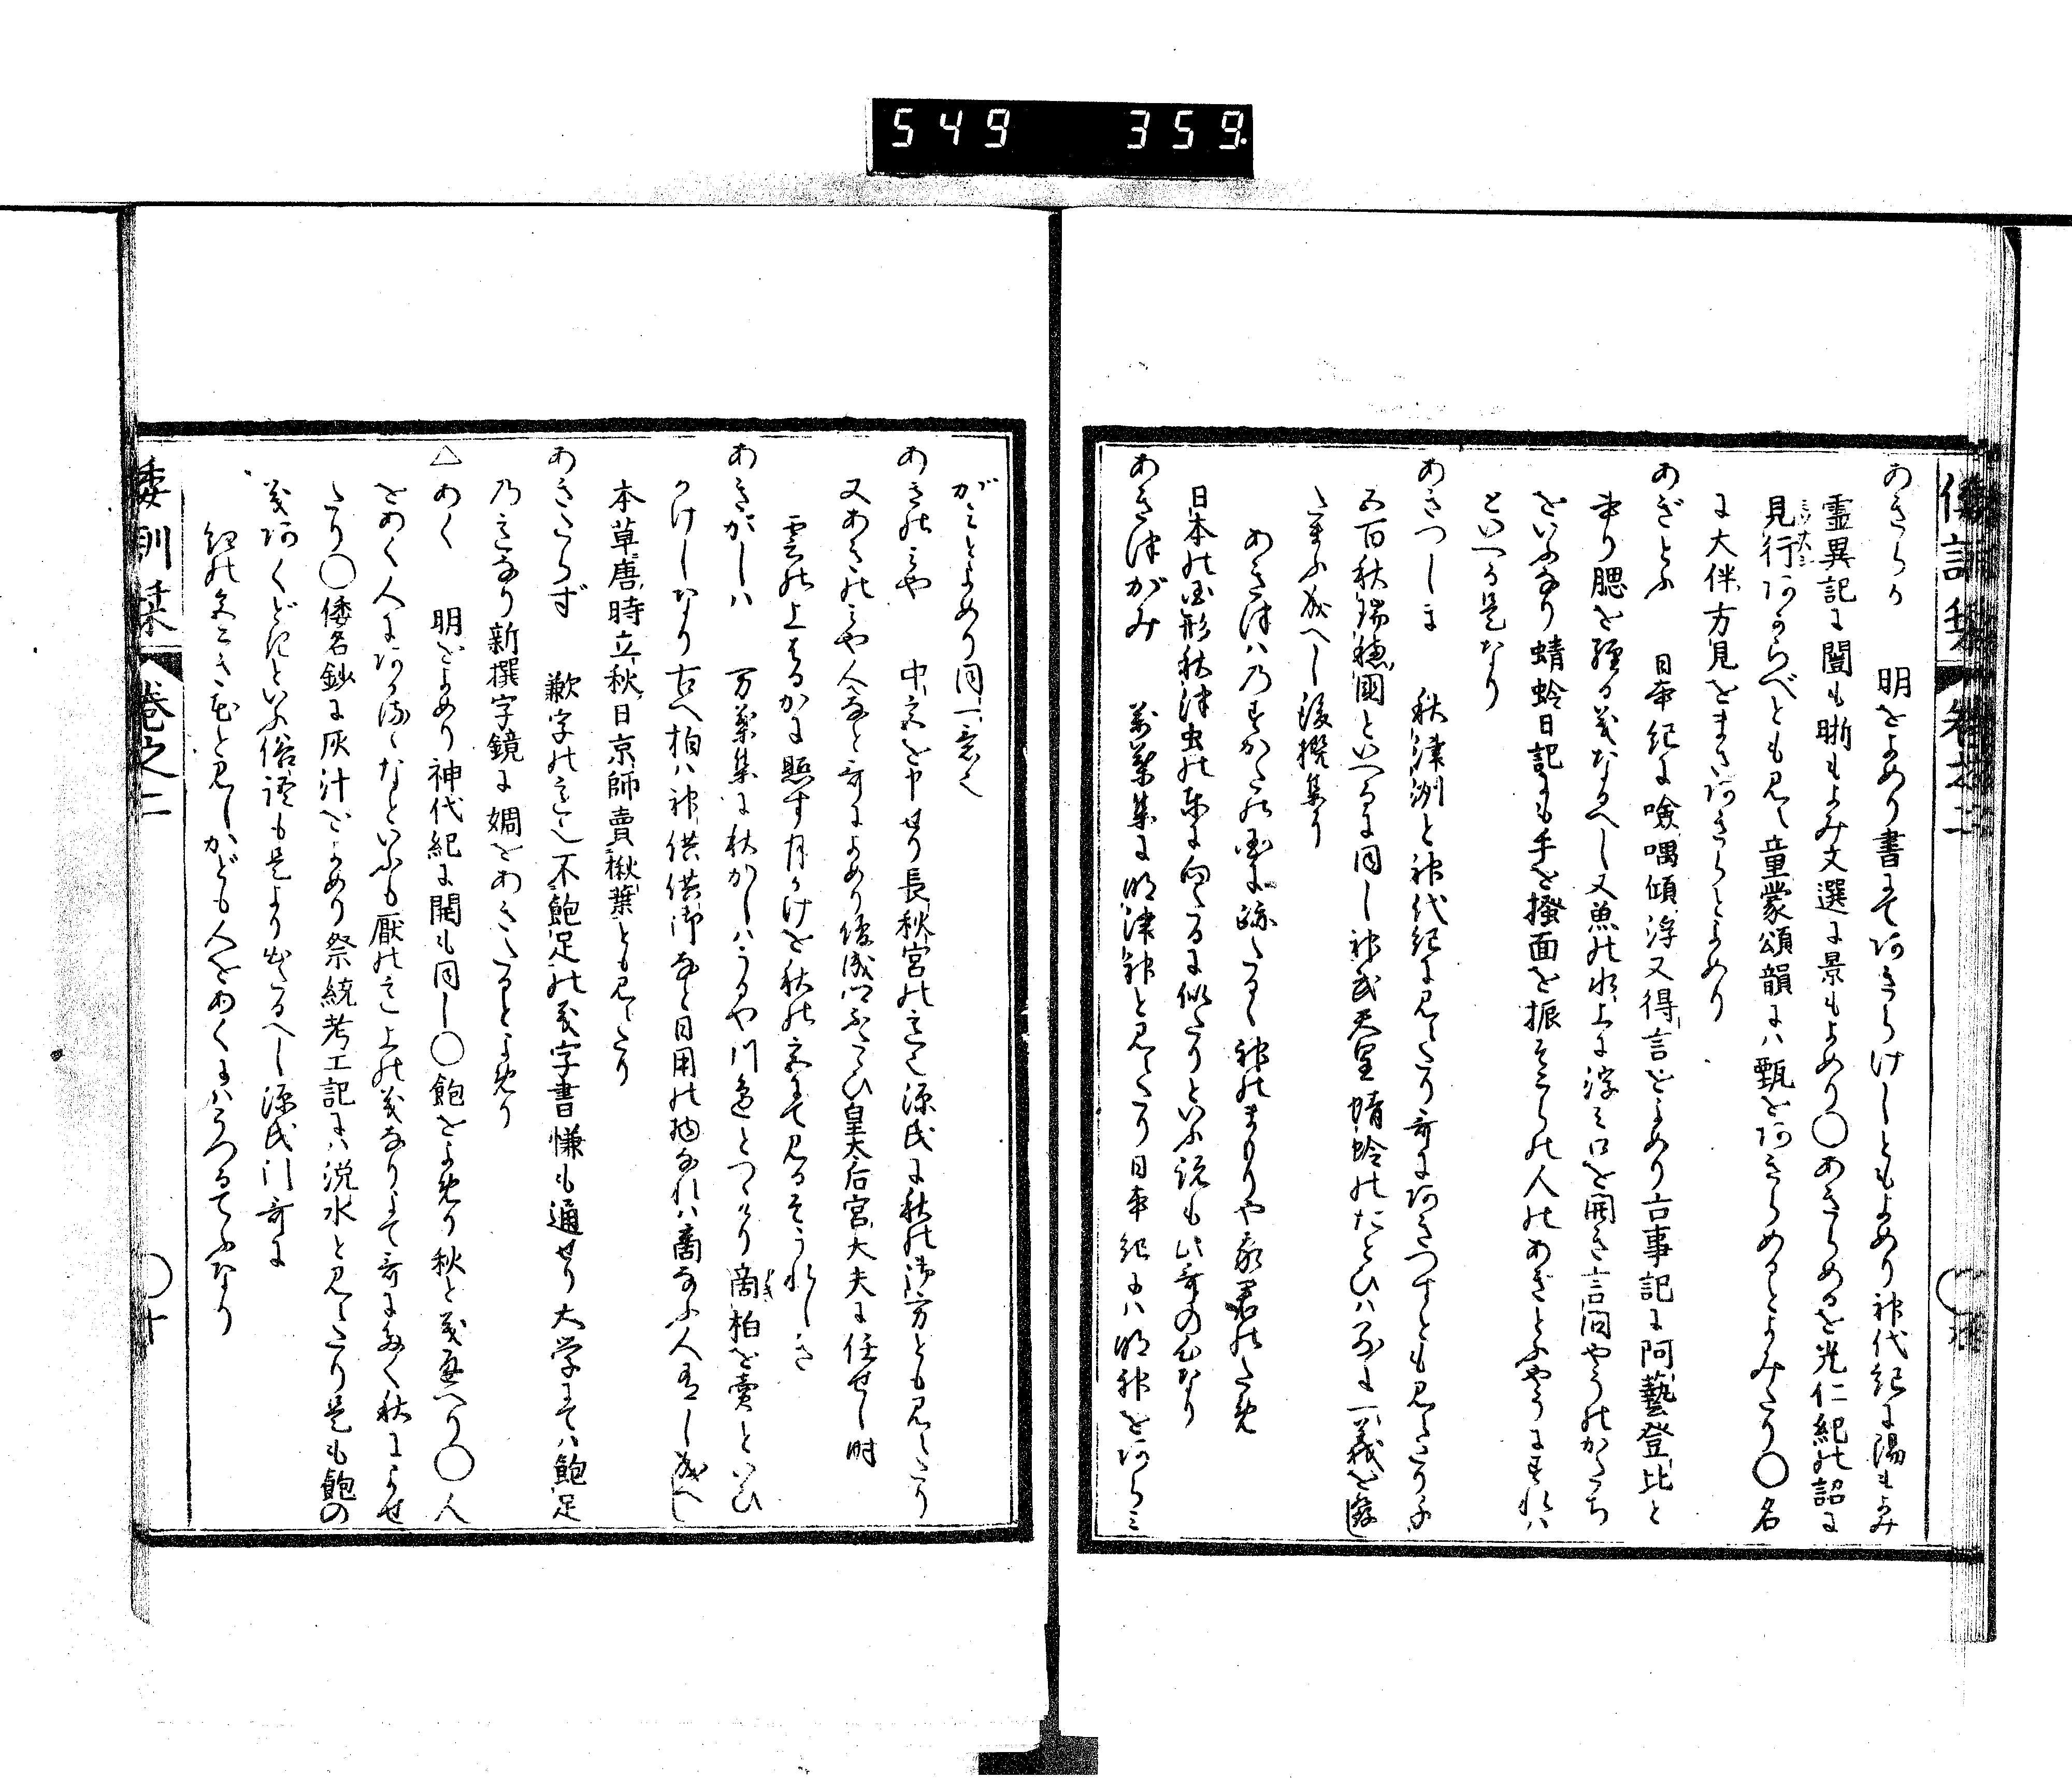 549 359.
倭訓栞 巻之二
あきらか 明をよめり書にてあきらけしともよめり神代紀に陽もよみ
霊異記に闓も晣もよみ文選に景もよめり○あきらめるを光仁紀の詔に
見行あからべとも見ゆ童蒙頌韻には甄をあきらめるとよみたり○名
に大伴方見をまさあきらとよめり
あぎとふ 日本紀に噞喁傾浮又得言をよめり古事記に阿藝登比と
あり腮を の義なるへし又魚の水上に浮み口を開き言問やうのかたち
をいふなり蜻蛉日記にも手を掻面を振そこらの人のあぎとふやうにすれは
といへる是なり
あきつしま 秋津洲と神代紀に見えたり哥にあきつすとも見えたり千
五百秋瑞穂国といへるに同し神武天皇蜻蛉のたとひは に一義を
たまふ成へし後撰集り
あきつは乃すかたの国に跡たるゝ神のまもりや我君のため
日本の国形秋津虫の東に向たるに似たりといふ説も此哥の心なり
あき津がみ 万葉集に明津神と見えたり日本紀には明神をあらみ
がみとよめり同一意也
あきのみや 中宮を申せり長秋宮の意也源氏に秋の御方とも見えたり
又あきのみや人なと哥によめり俊成 皇太后宮大夫に任せし時
雲の上はるかに照す月かけを秋の宮にて見るそうれしき
あきがしは 万葉集に秋かしはうるや川邉とつゝけり商柏を賣といひ
かけしなり古へ柏は神供供御なと日用の物なれは商なふ人有し成へし
本草唐時立秋日京師賣楸葉とも見えたり
あきたらず 歉字の意也不飽足の義字書慊も通せり大学にては飽足
乃意なり新撰字鏡に婤をあきたるとよめり
△あく 明をよめり神代紀に開も同し○飽をよめり秋と義通へり○人
をあく人にあかるゝなといふも厭の意上の義なりよて哥に多く秋によせ
たり○倭名鈔に灰汁をよめり祭統考工記には涚水と見えたり是も飽の
義あくどしといふ俗語も是より出たるへし源氏 哥に
紅の色こき花と見しかども人をあくにはうつるてふなり
倭訓栞 巻之二 ○十